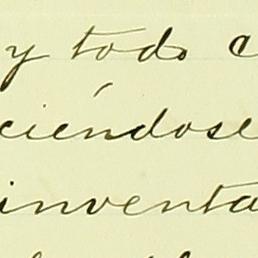 y todo c
ciéndose
inventa